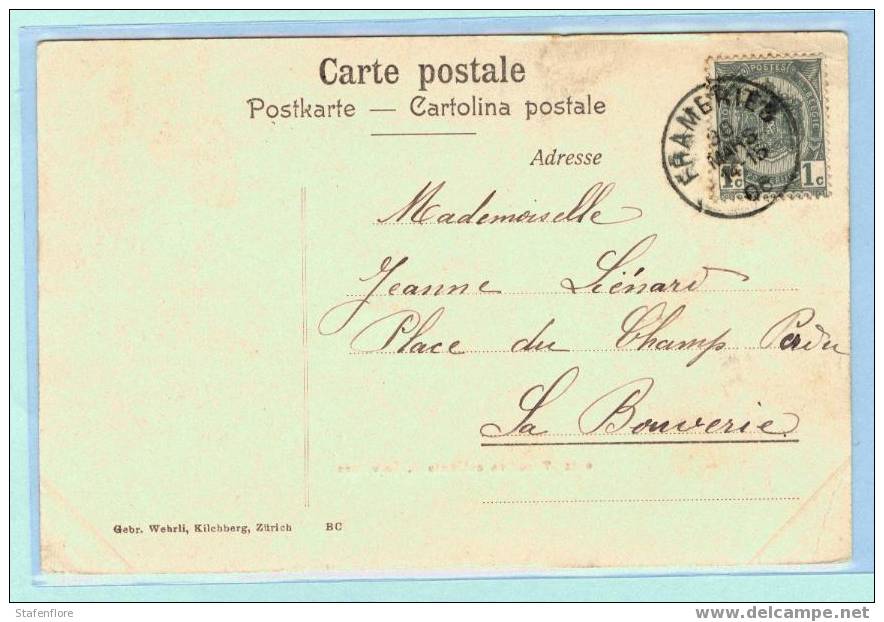 Carte postale
Postkarte — Cartolina postale
Adresse
POSTES
1c 1c
FRAMERIES
MARS
Mademoiselle
Jeanne Liénard
Place du Champ Perdu
La Bouverie
Gebr. Wehrli, Kilchberg, Zürich BC
Stafenflore
www.delcampe.net